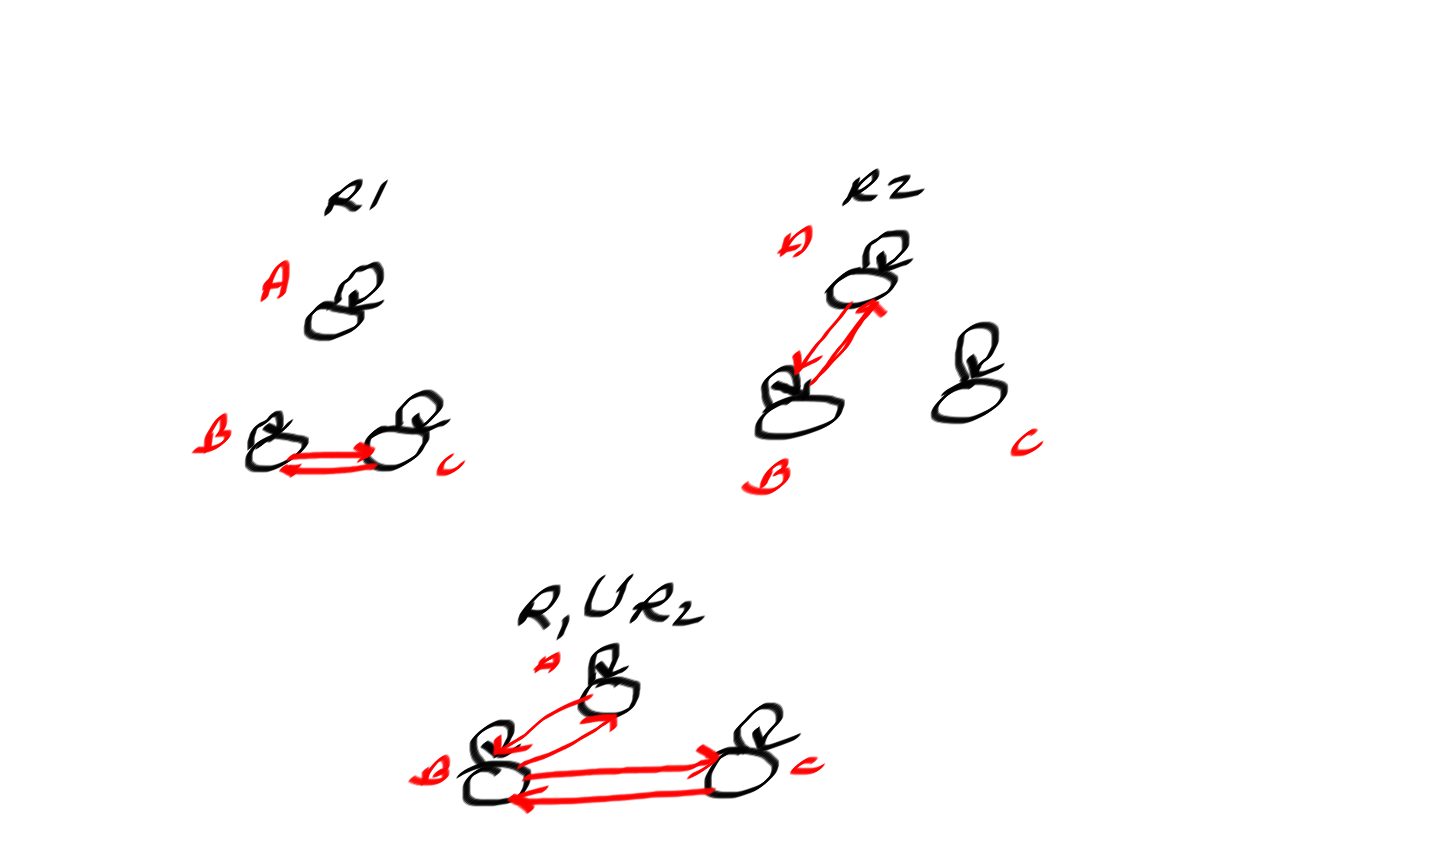 R1
A
B
C
R2
A
B
C
R1 ∪ R2
A
B
C